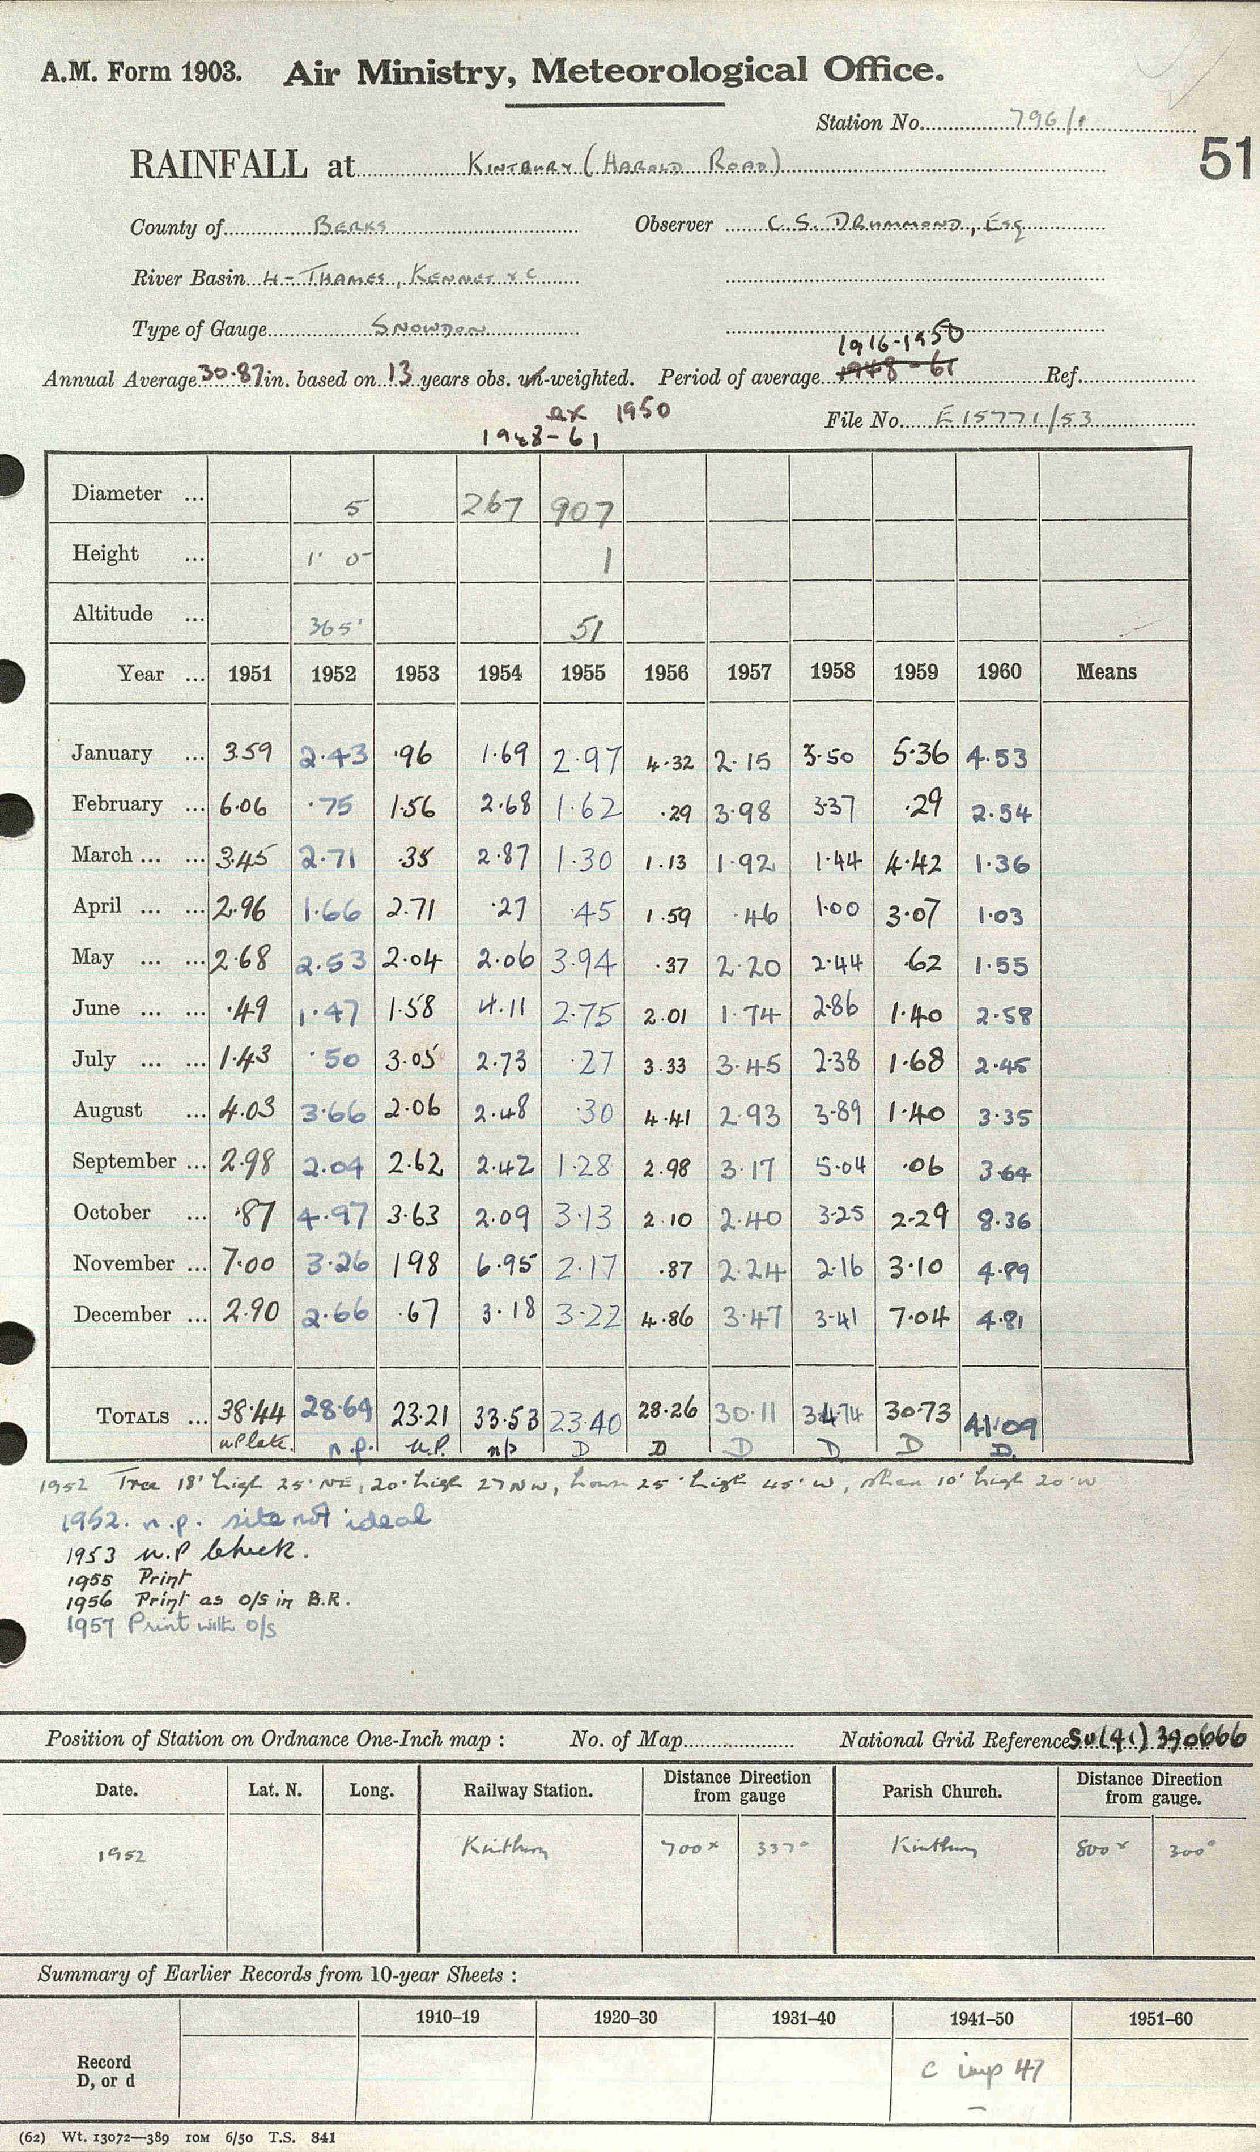 A.M. Form 1903. Air Ministry, Meteorological Office.
Station No. 796/1
51
RAINFALL at Kintbury (Harold Road)
County of Berks Observer C. S. Drummond, Esq
River Basin 4 - Thames, Kennet & C
Type of Gauge Snowdon
1916-1950
Annual Average 30.87 in. based on 13 years obs. un-weighted. Period of average 1948-61 Ref.
ex 1950
1948-61
File No. E 15771/53
Diameter ... 5 267 907
Height ... 1' 0" 1
Altitude ... 365' 51
Year ... 1951 1952 1953 1954 1955 1956 1957 1958 1959 1960 Means
January ... 3.59 2.43 .96 1.69 2.97 4.32 2.15 3.50 5.36 4.53
February ... 6.06 .75 1.56 2.68 1.62 .29 3.98 3.37 .29 2.54
March ... ... 3.45 2.71 .35 2.87 1.30 1.13 1.92 1.44 4.42 1.36
April ... ... 2.96 1.66 2.71 .27 .45 1.59 .46 1.00 3.07 1.03
May ... ... 2.68 2.53 2.04 2.06 3.94 .37 2.20 2.44 .62 1.55
June ... ... .49 1.47 1.58 4.11 2.75 2.01 1.74 2.86 1.40 2.58
July ... ... 1.43 .50 3.05 2.73 .27 3.33 3.45 2.38 1.68 2.45
August ... 4.03 3.66 2.06 2.48 .30 4.41 2.93 3.89 1.40 3.35
September ... 2.98 2.04 2.62 2.42 1.28 2.98 3.17 5.04 .06 3.64
October ... .87 4.97 3.63 2.09 3.13 2.10 2.40 3.25 2.29 8.36
November ... 7.00 3.26 1.98 6.95 2.17 .87 2.24 2.16 3.10 4.89
December ... 2.90 2.66 .67 3.18 3.22 4.86 3.47 3.41 7.04 4.81
TOTALS ... 38.44 28.64 23.21 33.53 23.40 28.26 30.11 34.74 30.73 41.09
n.p late. n.p. n.P. n/p D D D D D D.
1952 Tree 18' high 25' NE, 20' high 27 NW, house 25' high 45' W, other 10' high 20' W
1952. n.p. site not ideal
1953 n.P check.
1955 Print
1956 Print as o/s in B.R.
1957 Print with o/s
Position of Station on Ordnance One-Inch map : No. of Map National Grid Reference SU (41) 390666
Date. Lat. N. Long. Railway Station. Distance Direction from gauge Parish Church. Distance Direction from gauge.
1952 Kintbury 700x 337° Kintbury 800x 300°
Summary of Earlier Records from 10-year Sheets :
1910–19 1920–30 1931–40 1941–50 1951–60
Record
D, or d
C imp 47
(62) Wt. 13072—389 10M 6/50 T.S. 841